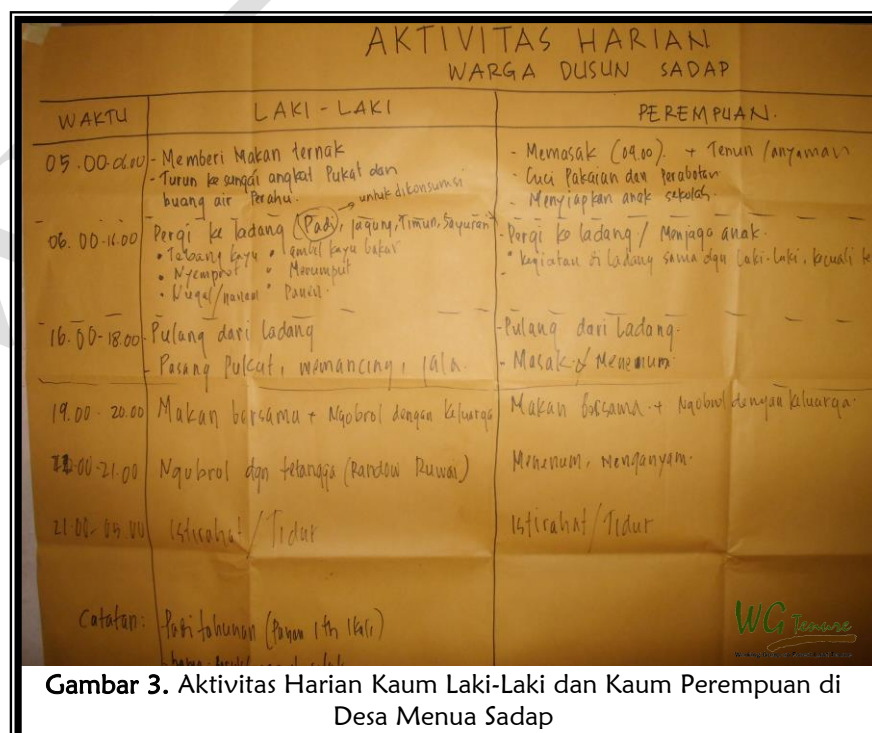 AKTIVITAS HARIAN
WARGA DUSUN SADAP
WAKTU
LAKI-LAKI
PEREMPUAN.
05.00-06.00
- Memberi Makan ternak
- Turun ke sungai angkat Pukat dan
buang air Perahu.
- Memasak (04.00). + Tenun /anyaman
- Cuci Pakaian dan Perabotan
- Menyiapkan anak sekolah.
untuk dikonsumsi
06.00-16.00
Pergi ke ladang (Padi), jagung, Timun, Sayuran
• Tebang kayu • ambil kayu bakar
• Nyemprot • Merumput
• Nugal/nanam • Panen.
- Pergi ke ladang / Menjaga anak.
• kegiatan di ladang sama dgn laki-laki, kecuali
16.00-18.00
- Pulang dari ladang
- Pasang Pukat, memancing, jala.
- Pulang dari ladang.
- Masak & Menenun
19.00-20.00
Makan bersama + Ngobrol dengan keluarga
Makan bersama + Ngobrol dengan keluarga.
00-21.00
Ngobrol dgn tetangga (Randow Ruwai)
Menenun, menganyam.
21.00-05.00
Istirahat/Tidur
Istirahat/Tidur
Catatan:
Padi tahunan (Panen 1 th 1 kali)
WG Tenure
Gambar 3. Aktivitas Harian Kaum Laki-Laki dan Kaum Perempuan di
Desa Menua Sadap